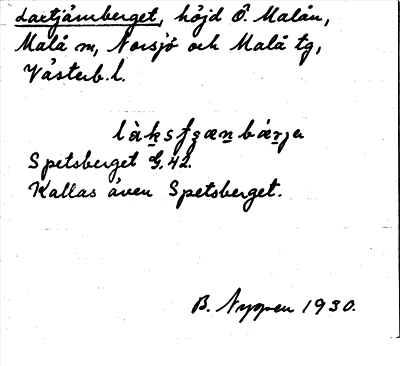 Laxtjärnberget, höjd Ö. Malån,
Malå sn, Norsjö och Malå tg,
Västerb. l.
Spetsberget G. 42.
Kallas även Spetsberget.
B. Nyppen 1930.